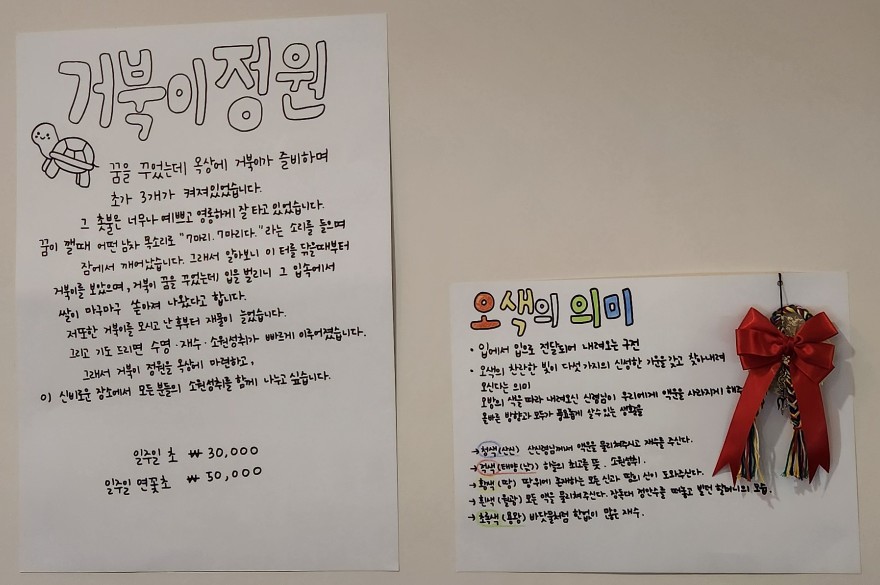 거북이정원
꿈을 꾸었는데 옥상에 거북이가 즐비하며
초가 3개가 켜져있었습니다.
그 촛불은 너무나 예쁘고 영롱하게 잘 타고 있었습니다.
꿈이 깰때 어떤 남자 목소리로 "7마리. 7마리다."라는 소리를 들으며
잠에서 깨어났습니다. 그래서 알아보니 이 터를 닦을때부터
거북이를 보았으며, 거북이 꿈을 꾸었는데 입을 벌리니 그 입속에서
쌀이 마구마구 쏟아져 나왔다고 합니다.
저또한 거북이를 모시고 난 후부터 재물이 늘었습니다.
그리고 기도 드리면 수명·재수·소원성취가 빠르게 이루어졌습니다.
그래서 거북이 정원을 옥상에 마련하고,
이 신비로운 장소에서 모든 분들의 소원성취를 함께 나누고 싶습니다.
일주일 초 ₩ 30,000
일주일 연꽃초 ₩ 50,000
오색의 의미
• 입에서 입으로 전달되어 내려오는 구전
• 오색의 찬란한 빛이 다섯가지의 신성한 기운을 갖고 찾아내려
오신다는 의미
오방의 색을 따라 내려오신 신령님이 우리에게 액운을 사라지게 해주
올바른 방향과 모두가 풍요롭게 살 수 있는 생활을
→ 청색(산신) 산신령님께서 액운을 물리쳐주시고 재수를 주신다.
→ 적색(태양(낮)) 하늘의 최고를 뜻. 소원성취.
→ 황색(땅) 땅위에 존재하는 모든 신과 땅의 신이 도와주신다.
→ 흰색(월광) 모든 액을 물리쳐주신다. 장독대 정안수를 떠놓고 빌던 할머니의 모습.
→ 초록색(용왕) 바닷물처럼 한없이 많은 재수.